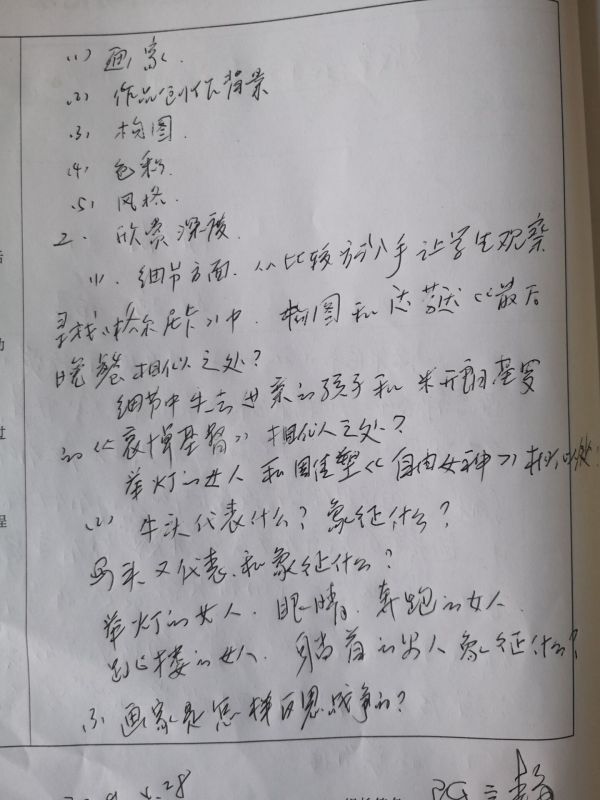 (1) 画家.
(2) 作品创作背景
(3) 构图.
(4) 色彩.
(5) 风格.
2. 欣赏深度.
(1). 细节方面. 从比较方式入手让学生观察
寻找《格尔尼卡》中. 构图和达芬奇《最后
晚餐 相似之处?
细节中失去母亲的孩子和米开朗基罗
的《哀悼基督》相似之处?
举灯的女人和圆雕塑《自由女神》相似处?
(2) 牛头代表什么? 象征什么?
马头又代表.和象征什么?
举灯的女人. 眼睛. 奔跑的女人.
跳楼的女人. 躺着的男人 象征什么?
3. 画家是怎样反思战争的?
4.28